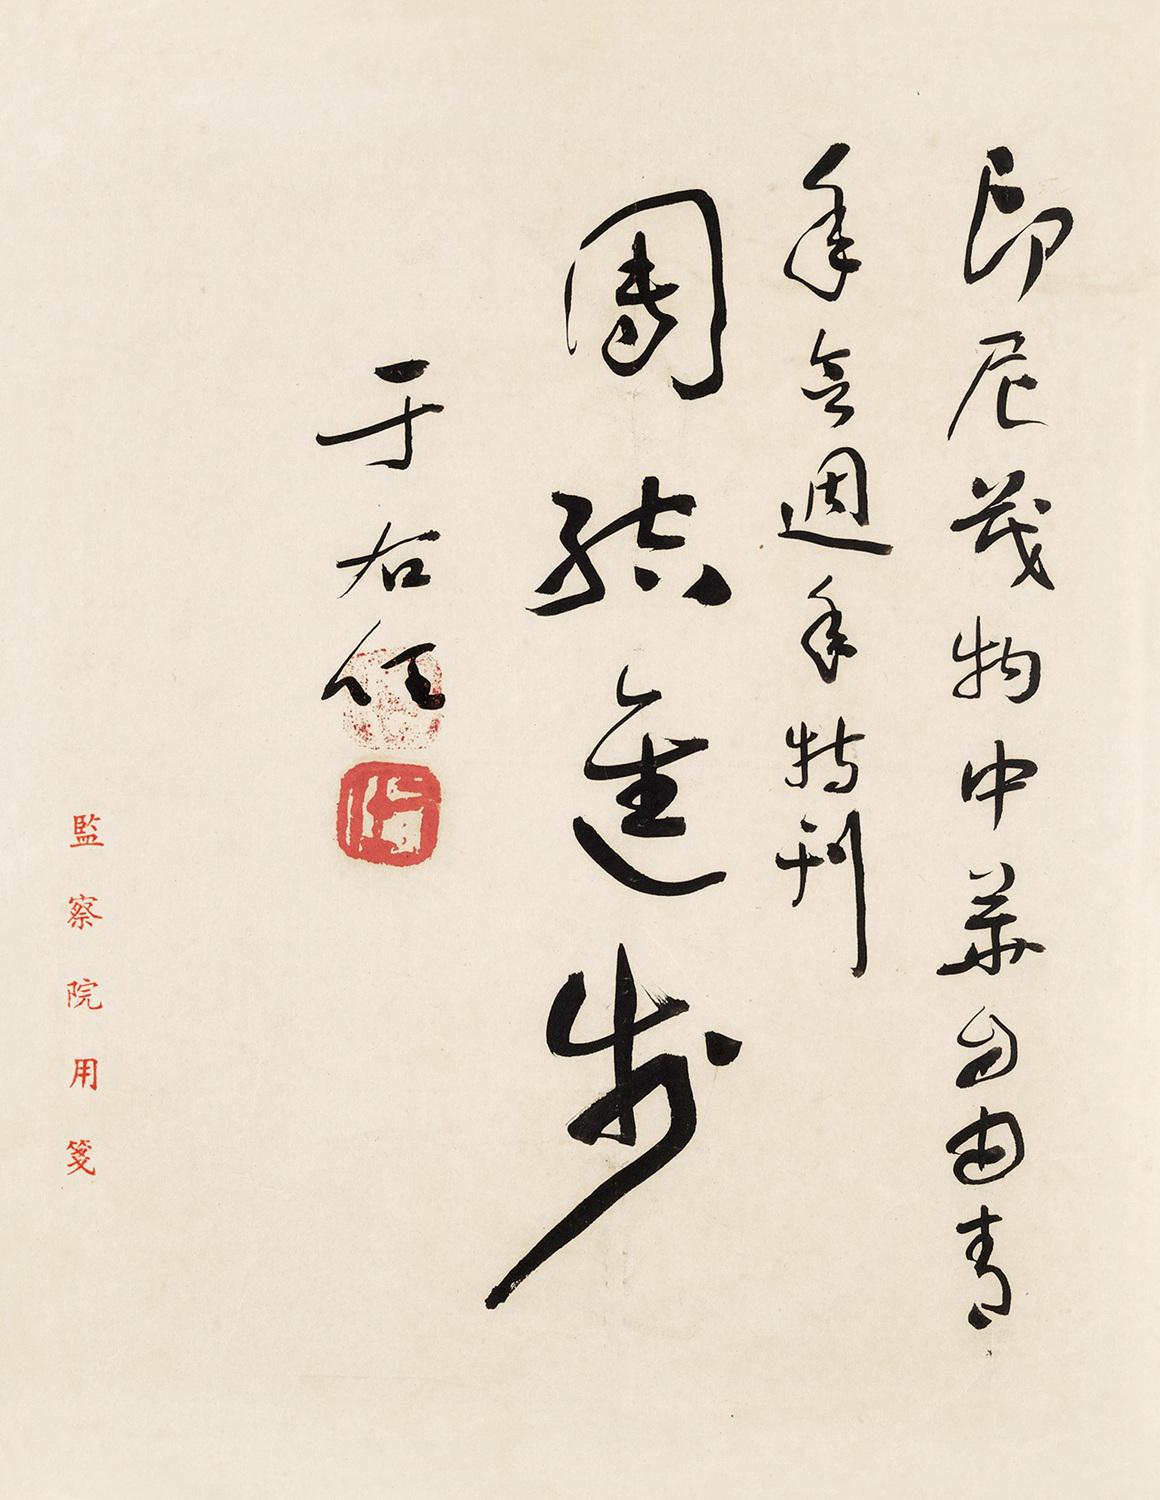 印尼茂物中華自由青
年會週年特刊
團結進步
于右任
監察院用箋